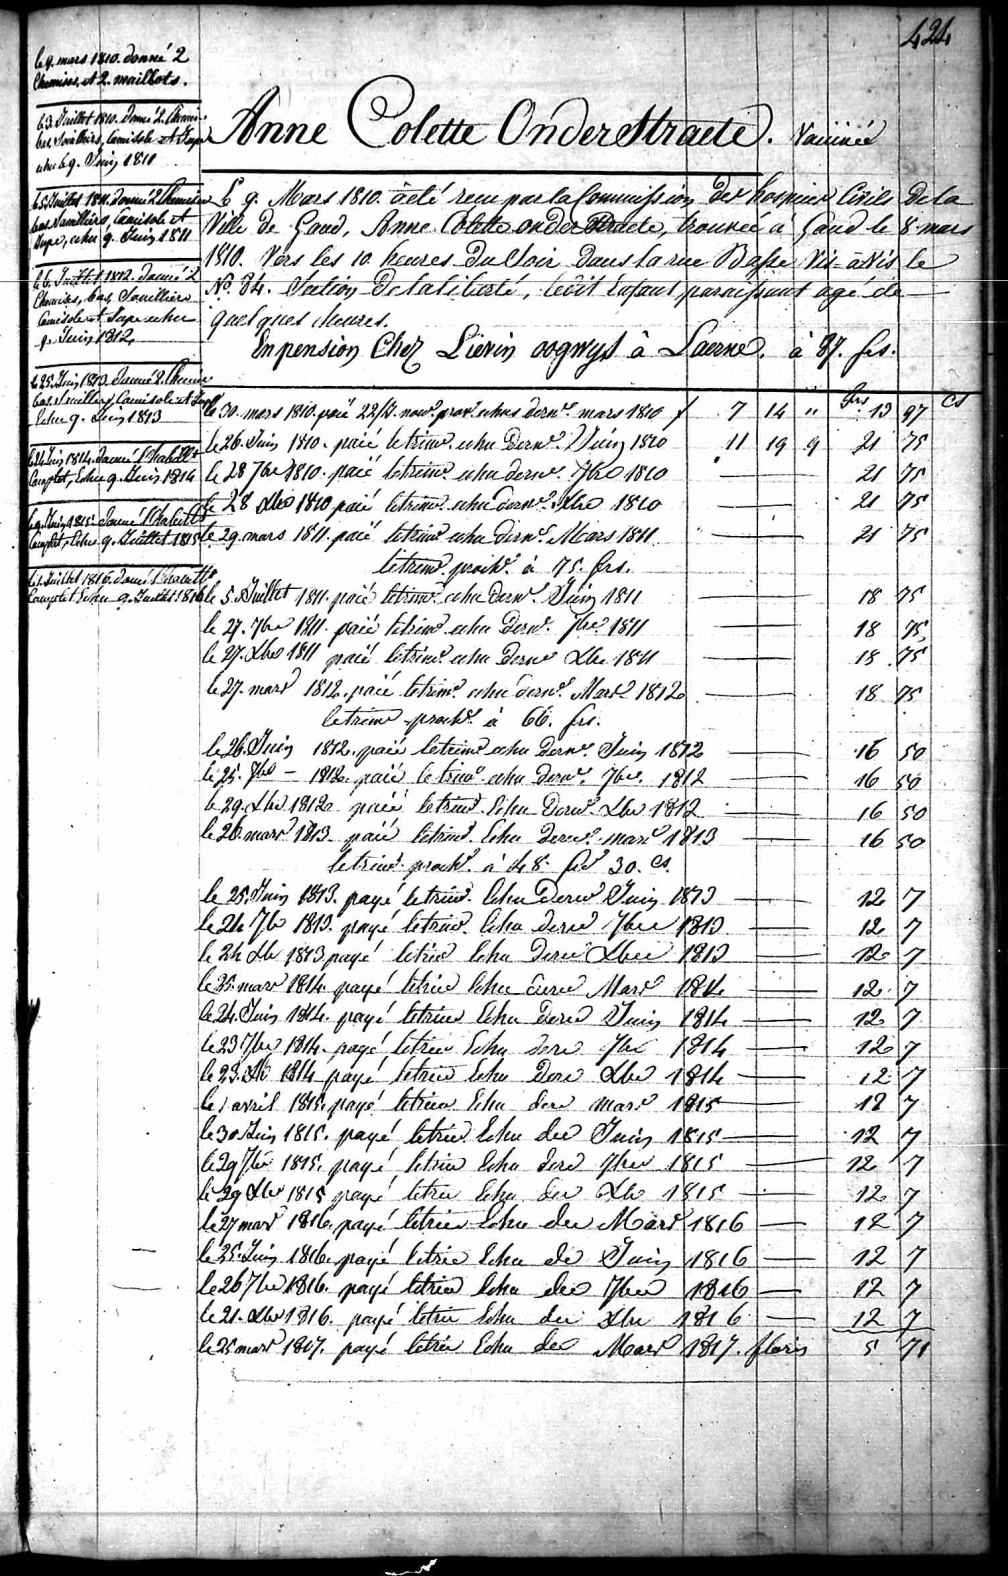 424
le 9. mars 1810. donné 2
Chemises et 2. maillots.
le 3. Juillet 1810. donné 2. Chemises
bas, Souilliers, Camisole et Jupe
echu le 9. Juin 1811
le 5. Juillet 1811. donné 2 Chemises
bas Souilliers, Camisole et
Jupe, echu 9. Juin 1811
le 6. Juillet 1812. donné 2
Chemises, bas, Souilliers
Camisole et Jupe echu
9. Juin 1812.
le 25. Juin 1813. donné 2. Chemises
bas. Souilliers, Camisole et Jupe
Echu 9. Juin 1813
le 24 Juin 1814. donné l'habillt
Complet, Echu 9. Juin 1814
le 9. Juin 1815. donné l'habillt
Complet, Echu 9. Juillet 1815
le 1. Juillet 1816. donné l'habillt
Complet Echu 9. Juillet 1816
Anne Colette Onderstraete. Vaccinée
Le 9. Mars 1810. a été recu par la Commission des hospices Civils de la
Ville de Gand, Anne Colette onderstraete, trouvée a Gand le 8. mars
1810. Vers les 10 heures du Soir dans la rue Basse Vis-à-Vis le
No. 84. Section de la liberté, ledit Enfant paraissant agé de
quelques heures.
En pension Chez Liévin oogwys à Laerne. à 87. frs.
frs cs
le 30. mars 1810. paié 22/J. nour. prov. echus dern. mars 1810 f 7 14 " 13 97
le 26. Juin 1810. paié le trim. echu dern. Juin 1810 11 19 9 21 75
le 28 7bre 1810. paié le trim. echu dern. 7bre 1810 — 21 75
le 28 Xbre 1810 paié le trim. echu dern. Xbre 1810 — 21 75
le 29. mars 1811. paié le trim. echu dern. Mars 1811 — 21 75
le trim. proch. à 75. frs.
le 5. Juillet 1811. paié le trim. echu dern. Juin 1811 — 18 75
le 27. 7bre 1811. paié le trim. echu dern. 7bre. 1811 — 18 75
le 27. Xbre 1811 paié le trim. echu dern. Xbre 1811 — 18 75
le 27. mars 1812. paié le trim. echu dern. Mars 1812 — 18 75
le trim. proch. à 66. frs.
le 26. Juin 1812. paié le trim. echu dern. Juin 1812 — 16 50
le 25. 7bre — 1812. paié le trim. echu dern. 7bre. 1812 — 16 50
le 29. Xbre 1812. paié le trim. Echu dern. Xbre 1812 — 16 50
le 26. mars 1813. paié le trim. Echu dern. mars 1813 — 16 50
le trim. proch. à 48. frs 30. cs.
le 25. Juin 1813. payé le trim. Echu dern Juin 1813 — 12 7
le 24 7bre 1813. payé le trim. Echu dern 7bre 1813 — 12 7
le 24 Xbre 1813 payé le trim Echu dern Xbre 1813 — 12 7
le 25. mars 1814. payé le trim Echu dern Mars 1814 — 12 7
le 24. Juin 1814. payé le trim Echu dern Juin 1814 — 12 7
le 23 7bre 1814. payé le trim Echu dern 7bre 1814 — 12 7
le 23. Xbre 1814 payé le trim Echu dern Xbre 1814 — 12 7
le 1 avril 1815. payé le trim Echu dern mars 1815 — 12 7
le 30 Juin 1815. payé le trim Echu der Juin 1815 — 12 7
le 29 7bre 1815. payé le trim Echu dern 7bre 1815 — 12 7
le 29 Xbre 1815 payé le trim Echu der Xbre 1815 — 12 7
le 27 mars 1816. payé le trim Echu der Mars 1816 — 12 7
le 25. Juin 1816. payé le trim Echu der Juin 1816 — 12 7
le 26 7bre 1816. payé le trim Echu der 7bre 1816 — 12 7
le 21. Xbre 1816. payé le trim Echu der Xbre 1816 — 12 7
le 25 mars 1817. payé le trim Echu der Mars 1817. florins 5 71